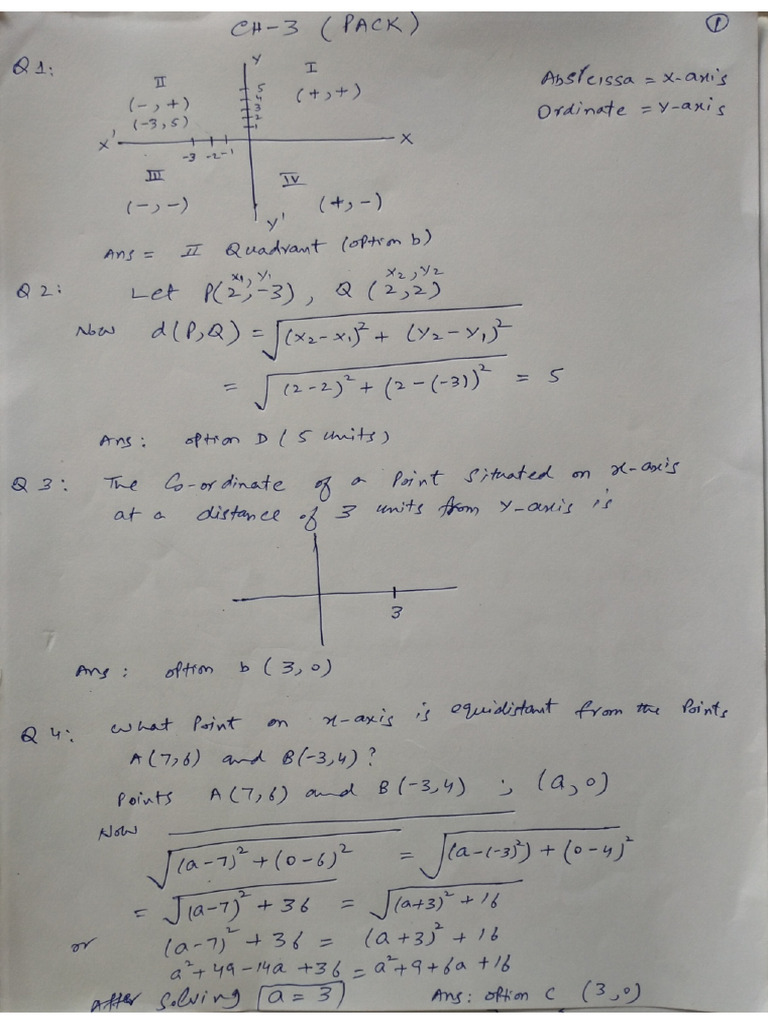 CH-3 (PACK)
1
Q1:
Y
II
I
(-,+)
(+,+)
(-3,5)
5
4
3
2
1
X'
X
-3 -2 -1
III
IV
(-,-)
(+,-)
Y'
Abscissa = X-axis
Ordinate = Y-axis
Ans = II Quadrant (option b)
x₁, y₁ x₂, y₂
Q2: Let P(2,-3), Q (2,2)
Now d(P,Q) = √(x₂-x₁)² + (y₂-y₁)²
= √(2-2)² + (2-(-3))² = 5
Ans: option D (5 units)
Q3: The Co-ordinate of a Point Situated on x-axis
at a distance of 3 units from Y-axis is
3
Ans: option b (3,0)
Q4: What Point on x-axis is equidistant from the Points
A(7,6) and B(-3,4)?
Points A(7,6) and B(-3,4) ; (a,0)
Now
√(a-7)² + (0-6)² = √(a-(-3)²) + (0-4)²
= √(a-7)² + 36 = √(a+3)² + 16
or (a-7)² + 36 = (a+3)² + 16
a² + 49 - 14a + 36 = a² + 9 + 6a + 16
After Solving a = 3 Ans: option C (3,0)